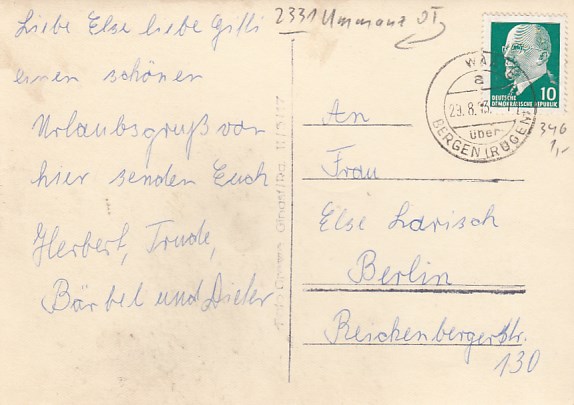 Liebe Else liebe Gitti
einen schönen
Urlaubsgruß von
hier senden Euch
Herbert, Trude,
Bärbel und Dieter
2331 Ummanz OT
10
DEUTSCHE
DEMOKRATISCHE REPUBLIK
a
29.8.
über
BERGEN (RÜGEN)
346
1,-
An
Frau
Else Larisch
Berlin
Reichenbergerstr.
130